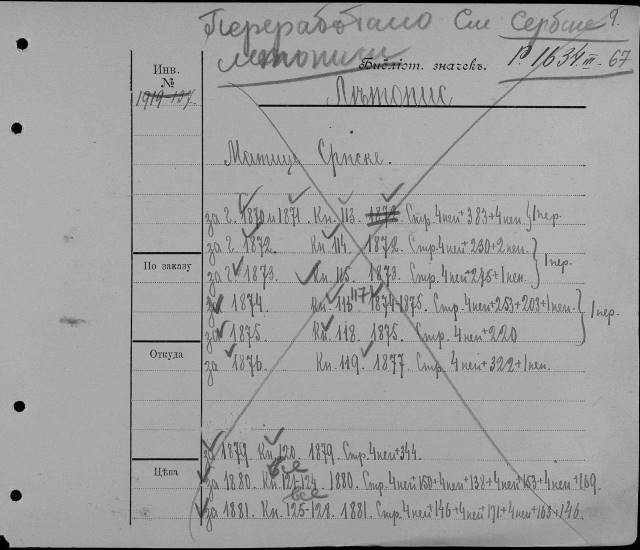 Переработано См Сербске
Лѣтописи
Инв.
№
1919-137
Библіот. значекъ.
Р. 1634 III - 67
Лѣтопис
Матице Српске.
за г. 1870 и 1871. Кн. 113. 1872. Стр. 4 неп + 383 + 4 неп. } 1 пер.
за г. 1872. Кн. 114. 1872. Стр. 4 неп + 230 + 2 неп.
По заказу
за г. 1873. Кн. 115. 1873. Стр. 4 неп + 275 + 1 неп. } 1 пер.
за 1874 Кн. 116 117 1874-1875. Стр. 4 неп + 253 + 203 + 1 неп.
за 1875 Кн. 118. 1875. Стр. 4 неп + 220 } 1 пер.
Откуда
за 1876. Кн. 119. 1877. Стр. 4 неп + 322 + 1 неп.
за 1879. Кн. 120. 1879. Стр. 4 неп + 344.
все
Цѣна
за 1880. Кн. 121-124. 1880. Стр. 4 неп 150 + 4 неп + 138 + 4 неп 153 + 4 неп + 169.
все
за 1881. Кн. 125-128. 1881. Стр. 4 неп 146 + 4 неп 171 + 4 неп 168 + 146.